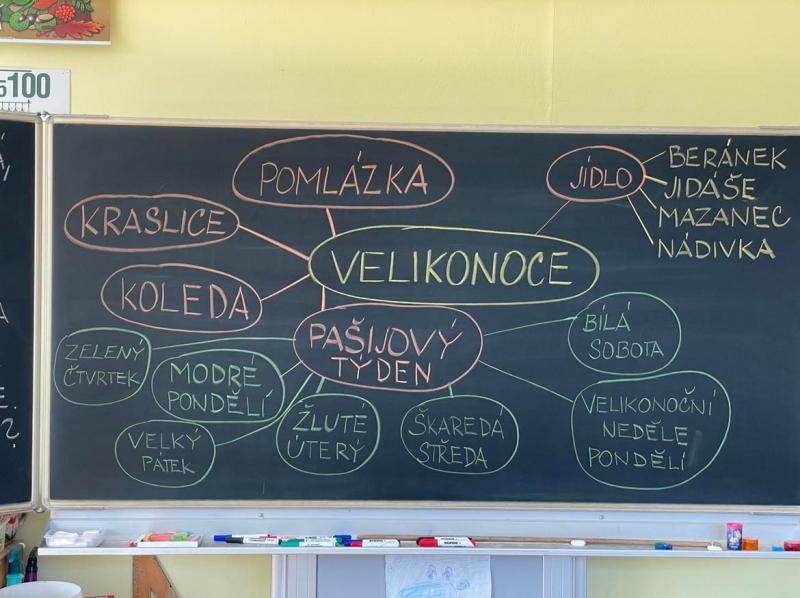 100
POMLÁZKA
JÍDLO
BERÁNEK
JIDÁŠE
MAZANEC
NÁDIVKA
KRASLICE
VELIKONOCE
KOLEDA
PAŠIJOVÝ
TÝDEN
BÍLÁ
SOBOTA
ZELENÝ
ČTVRTEK
MODRÉ
PONDĚLÍ
VELKÝ
PÁTEK
ŽLUTÉ
ÚTERÝ
ŠKAREDÁ
STŘEDA
VELIKONOČNÍ
NEDĚLE
PONDĚLÍ